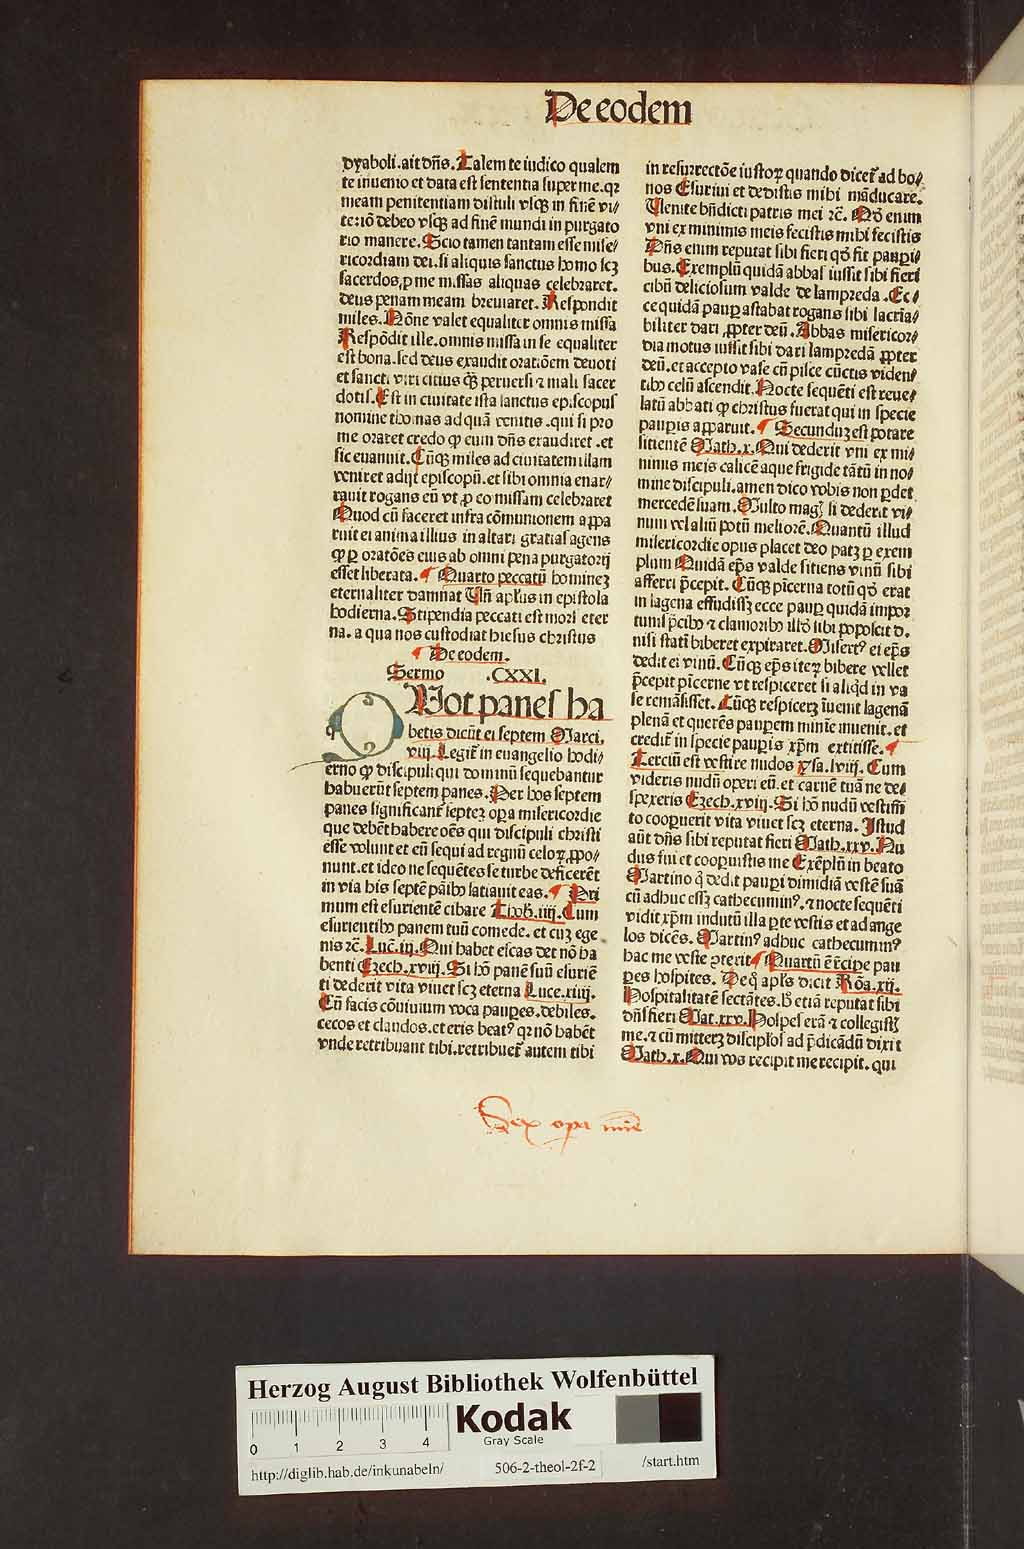 De eodem
dyaboli. ait dñs. Talem te iudico qualem
te inuenio et data est sententia super me. qꝛ
meam penitentiam distuli vsqꝫ in finē vi⸗
te: iō debeo vsqꝫ ad finē mundi in purgato
rio manere. Scio tamen tantam esse mise⸗
ricordiam dei. si aliquis sanctus homo scꝫ
sacerdos, p me missas aliquas celebraret.
deus penam meam breuiaret. Respondit
miles. Nōne valet equaliter omnis missa
Respōdit ille. omnis missa in se equaliter
est bona. sed deus exaudit oratiōem deuoti
et sancti viri citius qȝ̄ peruersi ⁊ mali sacer
dotis. Est in ciuitate ista sanctus episcopus
nomine thomas ad quā venitis. qui si pro
me oraret credo ꝙ eum dñs exaudiret. et
sic euanuit. Cūqꝫ miles ad ciuitatem illam
veniret adijt episcopū. et sibi omnia enar⸗
rauit rogans eū vt ꝓ eo missam celebraret
Quod cū faceret infra cōmunionem appa
ruit ei anima illius in altari gratias agens
ꝙ ꝑ oratōes eius ab omni pena purgatorij
esset liberata. ¶ Quarto peccatū homineꝫ
eternaliter damnat Vñ aplus in epistola
hodierna. Stipendia peccati est mors eter
na. a qua nos custodiat hiesus christus
¶ De eodem.
Sermo .CXXI.
QUot panes ha
betis dicūt ei septem Marci.
viij. Legit̄ in euangelio hodi⸗
erno ꝙ discipuli qui dominū sequebantur
habuerūt septem panes. Per hos septem
panes significant̄ septeꝫ oꝑa misericordie
que debēt habere oēs qui discipuli christi
esse volunt et eū sequi ad regnū celoꝝ, ꝓpo⸗
nunt. et ideo ne sequētes se turbe deficerēt
in via his septē panibꝰ satiauit eas. ¶ Pri
mum est esurientē cibare Thob. iiij. Cum
esurientibꝰ panem tuū comede. et cuꝫ ege
nis ⁊c̄. Luc̄. iij. Qui habet escas det nō ha
benti Ezech. xviij. Si hō panē suū esuriē
ti dederit vita viuet scꝫ eterna Luce. xiiij.
Cū facis cōuiuium voca pauꝑes. debiles.
cecos et claudos. et eris beatꝰ qꝛ nō habēt
vnde retribuant tibi. retribuet̄ autem tibi
in resurrectōe iustoꝝ quando dicet̄ ad bo⸗
nos Esuriui et dedistis mihi māducare.
Uenite bñdicti patris mei ⁊c̄. Qd̓ enim
vni ex minimis meis fecistis mihi fecistis
Dñs enim reputat sibi fieri qd̓ fit pauꝑi⸗
bus. Exemplū quidā abbas iussit sibi fieri
cibū deliciosum valde de lampreda. Ec⸗
ce quidā pauꝑ astabat rogans sibi lacri⸗
biliter dari ꝓpter deū. Abbas misericor⸗
dia motus iussit sibi dari lampredā ꝓpter
deū. et accepto vase cū pisce cūctis viden⸗
tibꝰ celū ascendit. Nocte sequēti est reue⸗
latū abbati ꝙ christus fuerat qui in specie
pauꝑis apparuit. ¶ Secunduꝫ est potare
sitientē Math. x. Qui dederit vni ex mi⸗
nimis meis calicē aque frigide tātū in no⸗
mine discipuli. amen dico vobis non ꝑdet
mercedē suam. Multo magꝭ si dederit vi⸗
num vel aliū potū meliorē. Quantū illud
misericordie opus placet deo patꝫ ꝑ exem
plum Quidā ep̄s valde sitiens vinū sibi
afferri p̄cepit. Cūqꝫ pīcerna totū qd̓ erat
in lagena effudissꝫ ecce pauꝑ quidā impor
tunis p̄cibꝰ ⁊ clamoribꝰ illd̓ sibi poposcit d.
nisi statī biberet expiraret. Misertꝰ ei ep̄s
dedit ei vinū. Cūqꝫ ep̄s iteꝝ bibere vellet
p̄cepit pīcerne vt respiceret si aliqd̓ in va
se remāsisset. Cūqꝫ respiceꝝ īuenit lagenā
plenā et querēs pauꝑem minīe inuenit. et
credit̄ in specie pauꝑis xp̄m extitisse. ¶
Terciū est vestire nudos ysa. lviij. Cum
videris nudū operi eū. et carnē tuā ne de⸗
spexeris Ezech. xviij. Si hō nudū vestim̄
to cooꝑuerit vita viuet scꝫ eterna. Istud
aūt dñs sibi reputat fieri Math. xxv. Nu
dus fui et cooꝑuistis me Exēplū in beato
Martino q̓ dedit pauꝑi dimidiā vestē suā
cū adhuc essꝫ cathecuminꝰ. ⁊ nocte sequēti
vidit xp̄m indutū illa ꝑte vestis et ad ange
los dicēs. Martinꝰ adhuc cathecuminꝰ
hac me veste ꝯterit ¶ Quartū ē ē̄cipe pau
ꝑes hospites. De q̓ apl̄s dicit Rōa. xij.
Hospitalitatē sectātes. B̓ etiā reputat sibi
dñs fieri Mat. xxv. Hospes erā ⁊ collegistꝭ
me. ⁊ cū mitterꝫ discipl̓os ad p̄dicādū dixit
Math. x. Qui vos recipit me recipit. qui
Sex opera mīe
Herzog August Bibliothek Wolfenbüttel
0 1 2 3 4
Kodak
Gray Scale
http://diglib.hab.de/inkunabeln/ 506-2-theol-2f-2 /start.htm